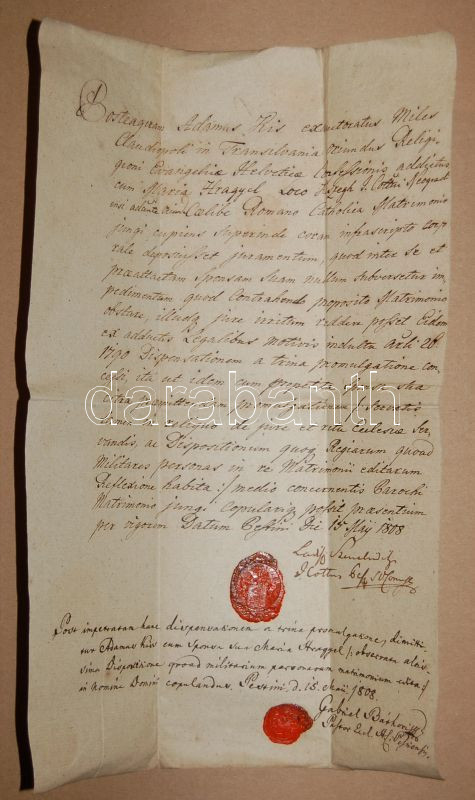 Posteaquam Adamus Kis exauctoratus Miles
Claudiopoli in Transilvania oriundus Religi
oni Evangelicae Helveticae Confessionis addictus
cum Maria Hraggel Loco
Caelibe Romano Catholica Matrimonio
jungi cupiens superinde coram infrascripto corpo
rale deposuisset juramentum, quod inter se et
praeattactam Sponsam suam nullum subversetur im
pedimentum quod Contrahendo proposito Matrimonio
obstare, illudq jure irritum reddere posset Eidem
ex adductis Legalibus motivis indulta Arti 26
1790 Dispensationem a trina promulgatione con
cessi, ita ut idem cum praefata Sponsa sua
intra promulgationem, servatis
tamen in reliquo de jure et ritu Ecclesiae Ser
vandis, ac Dispositionum quoq Regiarum quoad
Militares personas in re Matrimonii editarum
Reflexione habita :/ medio concernentis Parochi
Matrimonio jungi Copulariq possit praesentium
per vigorem Datum Pestini Die 15 Maij 1808
darabanth
Post impetratam hanc dispensationem a trina promulgatione, dimitti
tur Adamus Kis cum Sponsa Sua Maria Hraggel, observata altis
sima Dispositione quoad militarium personarum matrimonium edita :/
in Nomine Domini copulandus. Pestini, d. 15. Maii 1808.
Gabriel
Pastor Eccl.